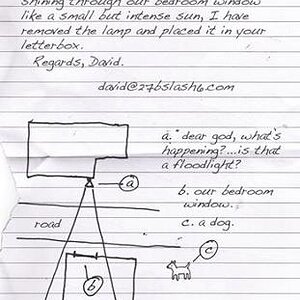 shining through our bedroom window
like a small but intense sun, I have
removed the lamp and placed it in your
letterbox.
Regards, David.
david@27bslash6.com
a. " dear god, what's
happening?...is that
a floodlight?
a
b. our bedroom
window.
c. a dog.
road
c
b